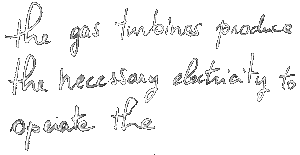 the gas turbines produce
the necessary electricity to
operate the